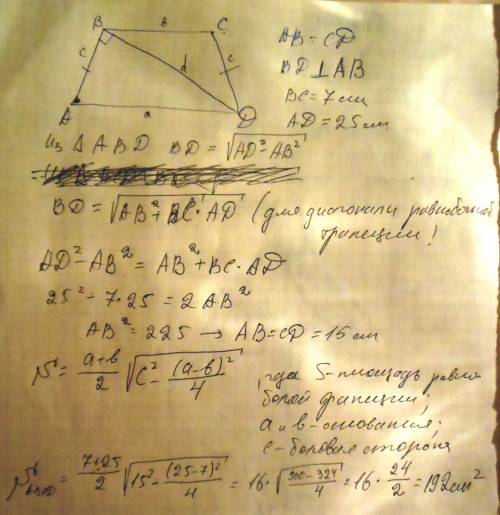 B в C
AB = CD
c d c
BD ⊥ AB
BC = 7 см
A a D
AD = 25 см
Из Δ ABD BD = √(AD² - AB²)
BD = √(AB² + BC · AD) (для диагонали равнобочной
трапеции!
AD² - AB² = AB² + BC · AD
25² - 7·25 = 2AB²
AB² = 225 → AB = CD = 15 см
S = (a+в)/2 √(c² - (a-в)²/4)
, где S - площадь равно
бокой трапеции;
a и в - основания;
c - боковая сторона
S ABCD = (7+25)/2 √(15² - (25-7)²/4) = 16 · √((900-324)/4) = 16 · 24/2 = 192 см²